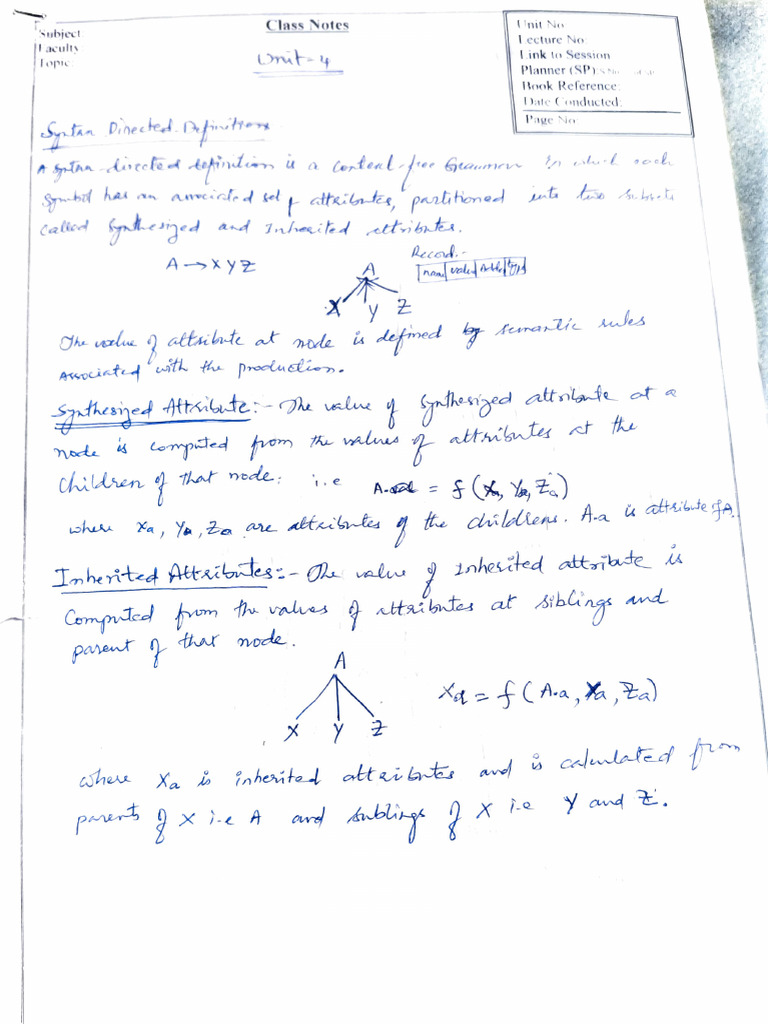 Class Notes
Subject
Faculty
Topic:
Unit-4
Unit No
Lecture No:
Link to Session
Planner (SP):
Book Reference:
Date Conducted:
Page No
Syntax Directed Definitions
A syntax-directed definition is a context-free Grammar in which each
symbol has an associated set of attributes, partitioned into two subsets
called synthesized and Inherited attributes.
A → X Y Z
Record:-
name value
A
X Y Z
The value of attribute at node is defined by semantic rules
associated with the production.
Synthesized Attribute:- The value of synthesized attribute at a
node is computed from the values of attributes at the
children of that node; i.e = f (Xa, Ya, Za)
where Xa, Ya, Za are attributes of the childrens. A.a is attribute of A.
Inherited Attributes:- The value of Inherited attribute is
Computed from the values of attributes at siblings and
parent of that node.
A
X Y Z
Xa = f (A.a, Ya, Za)
where Xa is inherited attributes and is calculated from
parents of X i.e A and sublings of X i.e Y and Z.